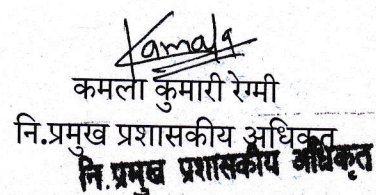 Kamala
कमला कुमारी रेग्मी
नि.प्रमुख प्रशासकीय अधिकृत
नि.प्रमुख प्रशासकीय अधिकृत